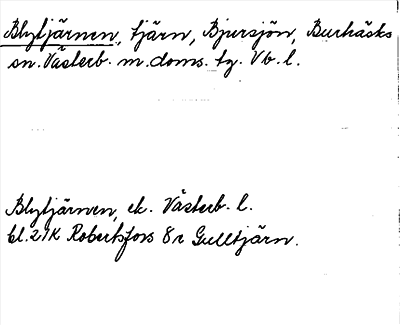 Blytjärnen, tjärn, Bjursjön, Burhäsks
sn. Västerb. m. doms. tg. Vb. l.
Blytjärnen, ek. Västerb. l.
bl. 21K Robertsfors 8 r Gulltjärn.